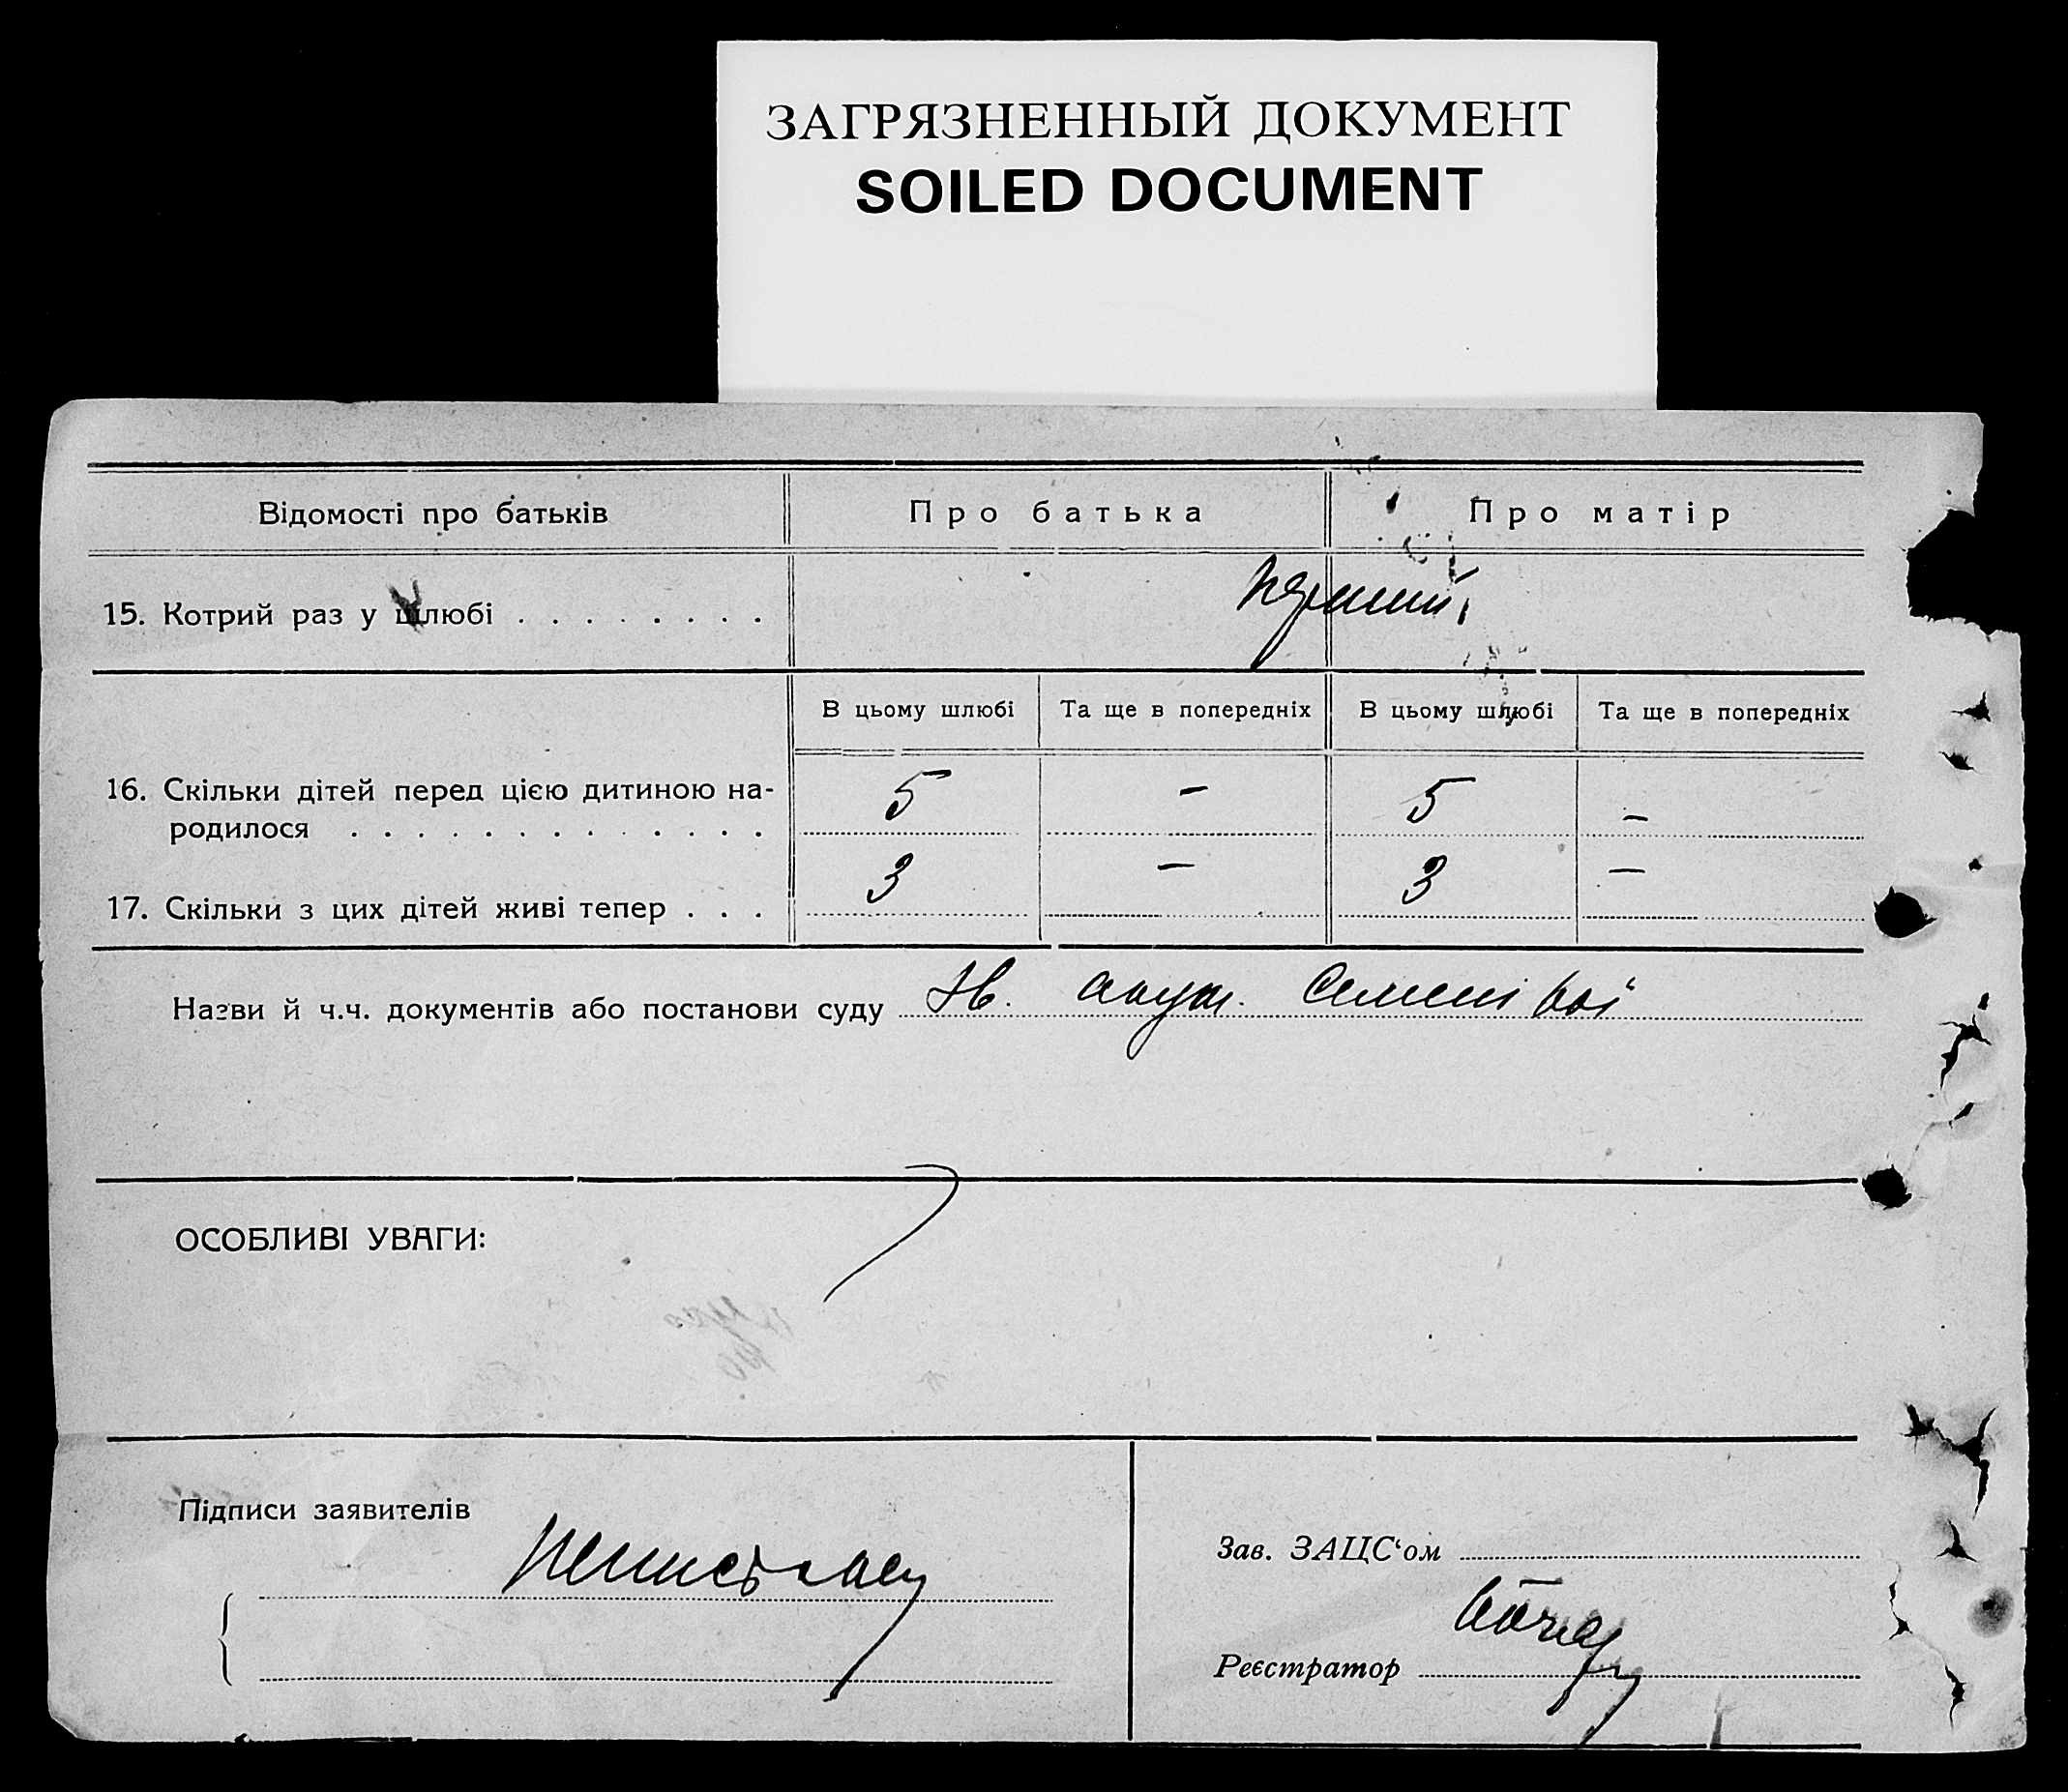 ЗАГРЯЗНЕННЫЙ ДОКУМЕНТ
SOILED DOCUMENT
Відомості про батьків Про батька Про матір
15. Котрий раз у шлюбі . . . . . . . . перший
В цьому шлюбі Та ще в попередніх В цьому шлюбі Та ще в попередніх
16. Скільки дітей перед цією дитиною на-
родилося . . . . . . . . . . . . . 5 – 5 –
17. Скільки з цих дітей живі тепер . . . 3 – 3 –
Назви й ч.ч. документів або постанови суду
ОСОБЛИВІ УВАГИ:
Підписи заявителів
Зав. ЗАЦС‘ом
Реєстратор